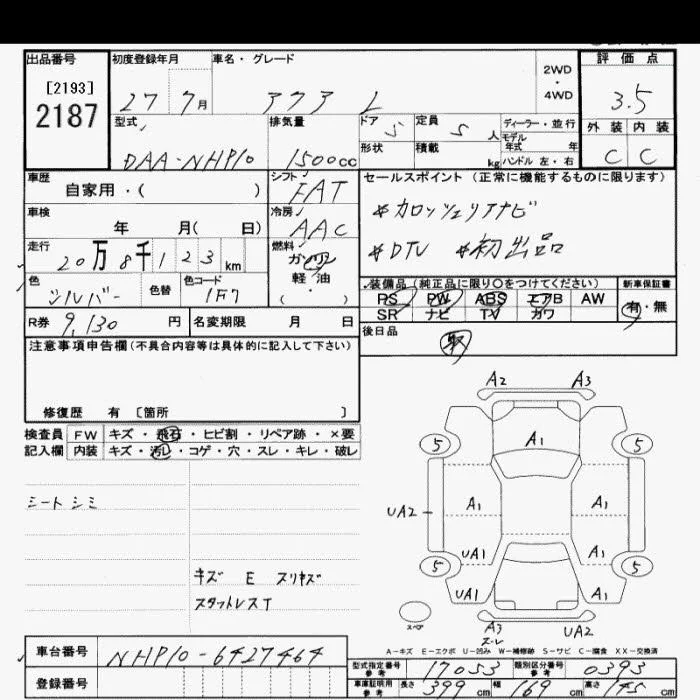 出品番号
[2193]
2187
初度登録年月
27 7月
車名・グレード
アクア L
2WD
・
4WD
評価点
3.5
外装 内装
C C
型式
DAA-NHP10
排気量
1500cc
ドア
5
定員
5人
形状
積載
kg
ディーラー・並行
モデル
年式 年
ハンドル 左・右
車歴
自家用・( )
シフト
FAT
車検
年 月( 日)
冷房
AAC
走行
20万8千123km
燃料
ガソリン
軽・油
・
( )
色
シルバー
色替
色コード
1F7
R券
9,130円
名変期限 月 日
セールスポイント (正常に機能するものに限ります)
#カロッツェリアナビ
#DTV #初出品
装備品 (純正品に限り〇をつけてください)
PS PW ABS エアB AW
SR ナビ TV ガワ
新車保証書
有・無
後日品
取
注意事項申告欄(不具合内容等は具体的に記入して下さい)
修復歴 有 [箇所 ]
検査員
記入欄
FW キズ・飛石・ヒビ割・リペア跡・×要
内装 キズ・汚れ・コゲ・穴・スレ・キレ・破レ
シートシミ
キズ E スリキズ
スタットレスT
A2 A3
5 A1 5
UA2 A1 A1
UA1 A1
5 5
UA1 A1
スペア
A3
スレ
UA2
A-キズ E-エクボ U-凹み W-補修跡 S-サビ C-腐食 XX-交換済
車台番号
NHP10-6427464
登録番号
型式指定番号
参考
17053
類別区分番号
参考
0393
車庫証明用
参考
長さ 399cm 幅 169cm 高さ 145cm